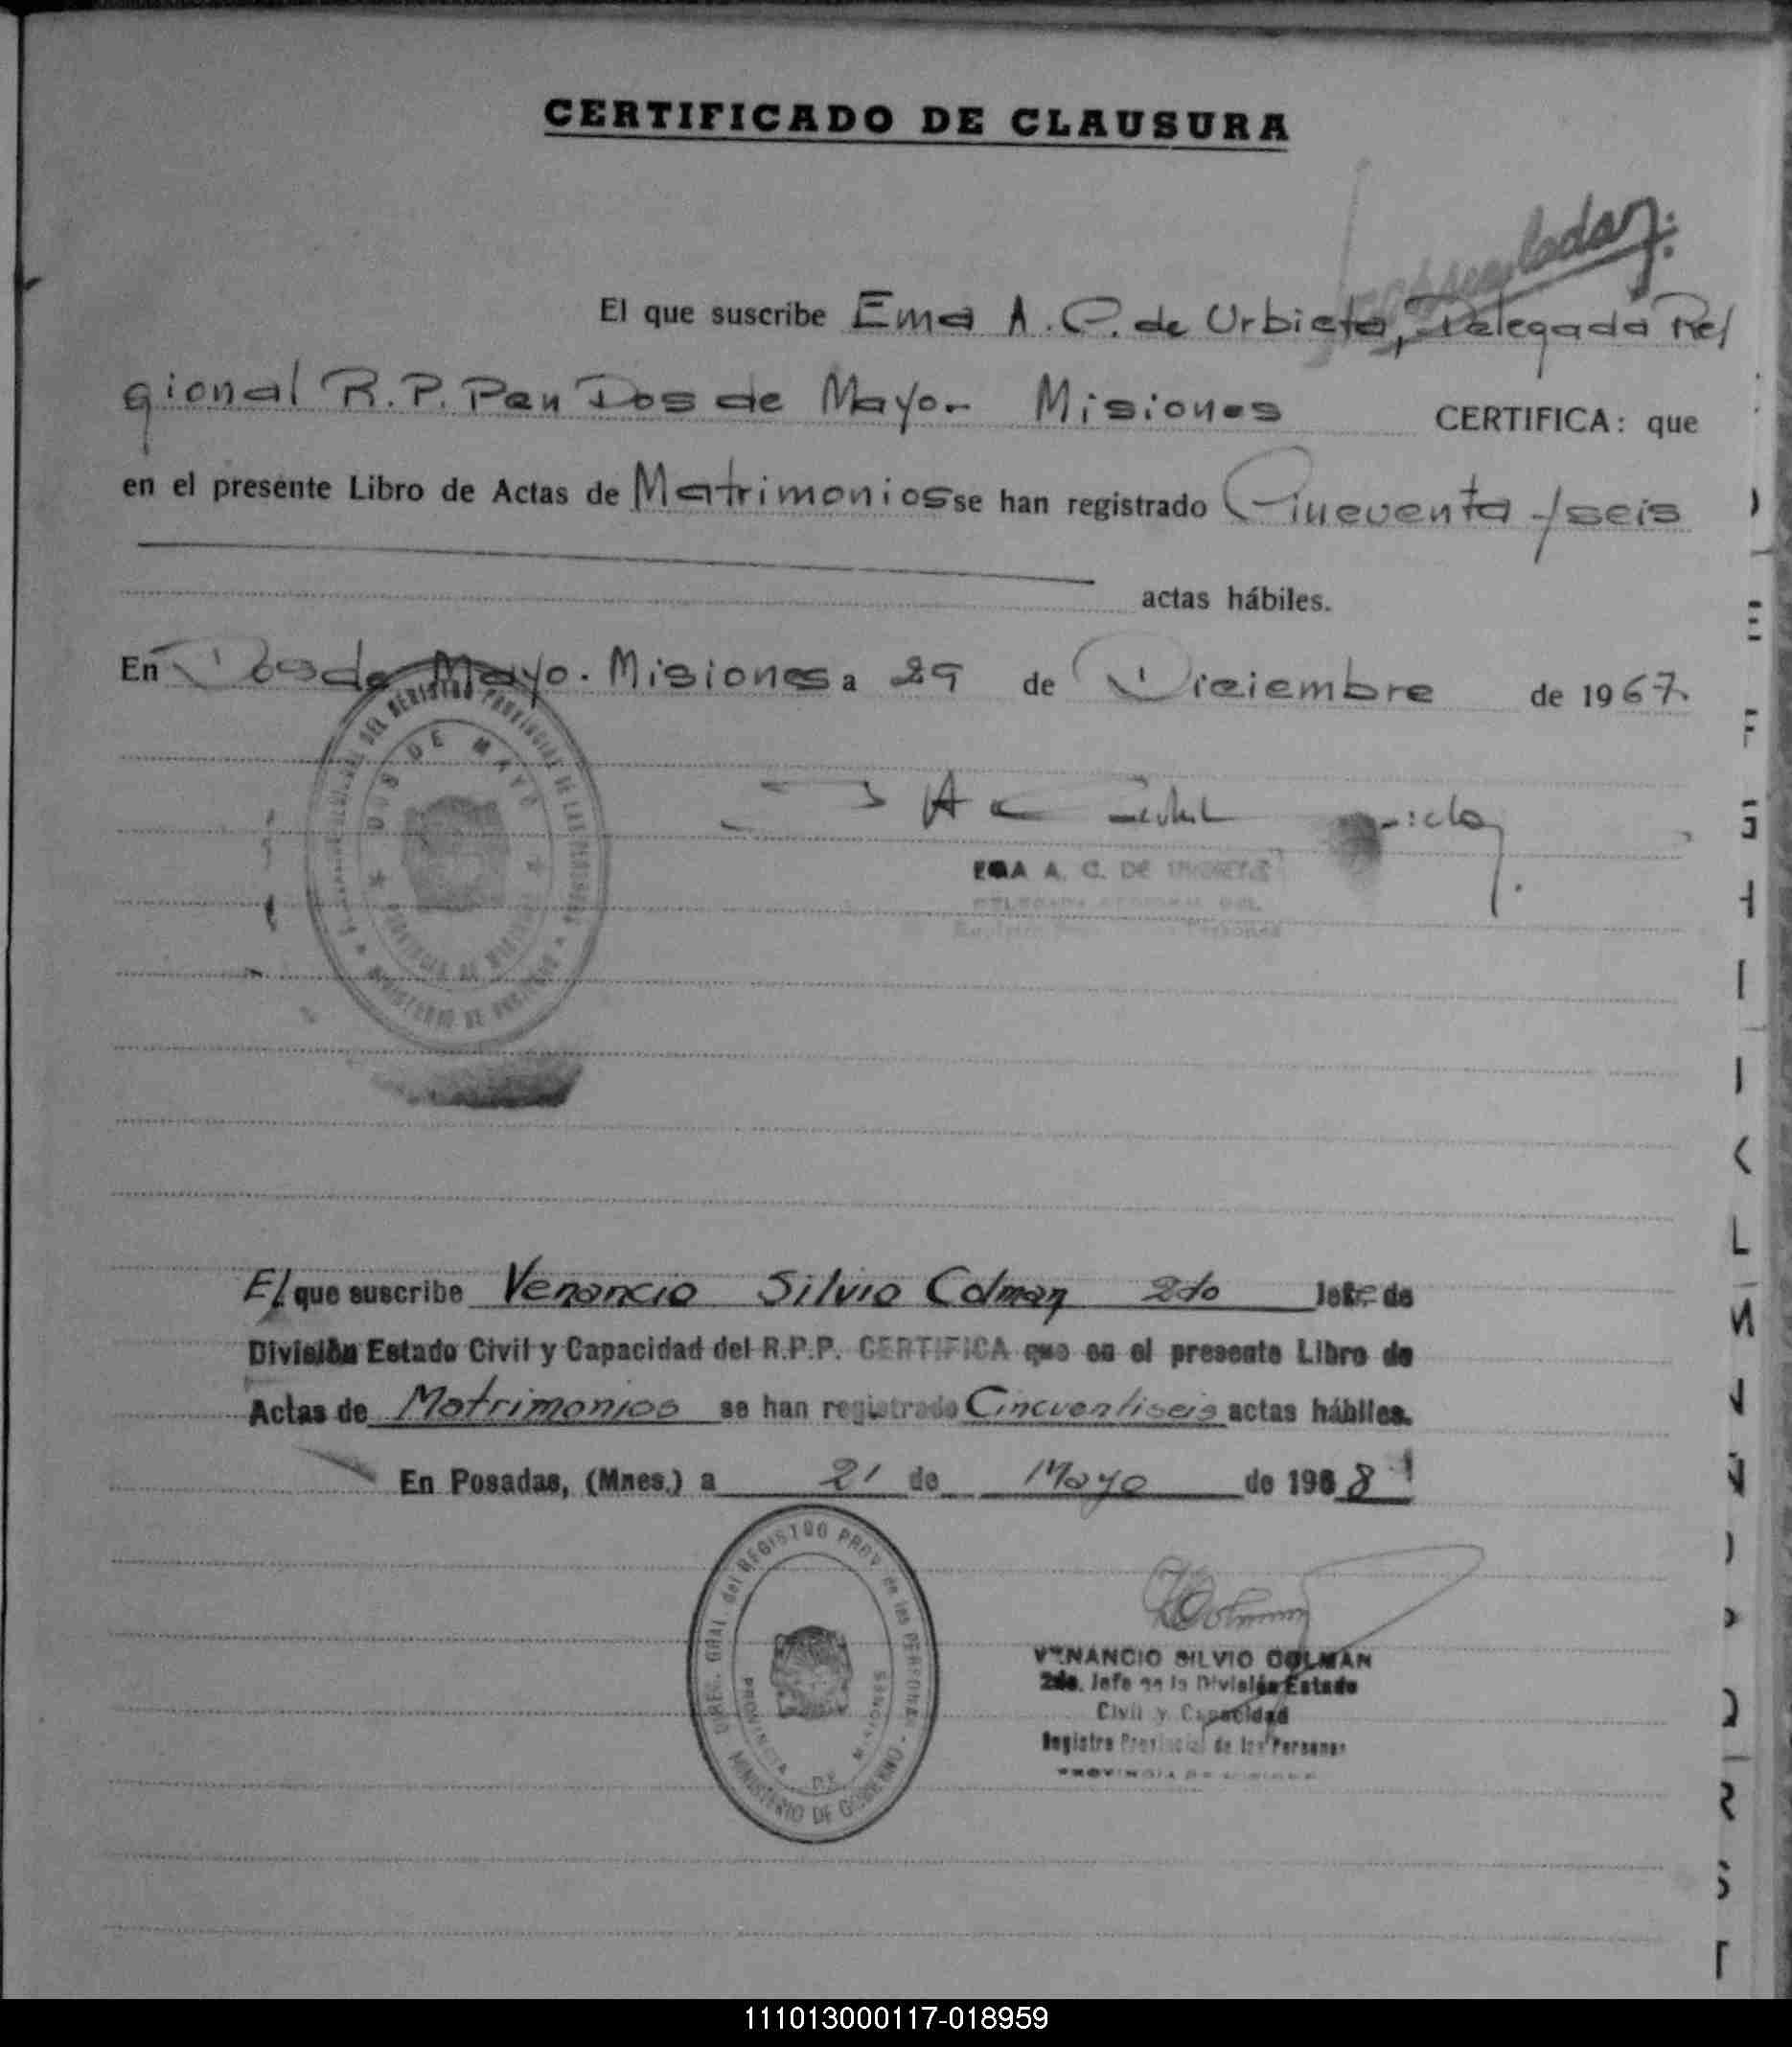 CERTIFICADO DE CLAUSURA
El que suscribe Ema A. C. de Urbieta, Delegada Re/
gional R.P. Pen Dos de Mayo.- Misiones CERTIFICA: que
en el presente Libro de Actas de Matrimonios se han registrado Cincuenta y seis
actas hábiles.
En Dos de Mayo. Misiones a 29 de Diciembre de 1967.
DEL REGISTRO PROVINCIAL DE LAS PERSONAS
DOS DE MAYO
PROVINCIA DE MISIONES
MINISTERIO DE
EMA A. C. DE URBIETA
DELEGADA REGIONAL DEL
El que suscribe Venancio Silvio Colman 2do Jefe de
División Estado Civil y Capacidad del R.P.P. CERTIFICA que en el presente Libro de
Actas de Matrimonios se han registrado Cincuentiseis actas hábiles.
En Posadas, (Mnes.) a 21 de Mayo de 1968
DIREC. GRAL. del REGISTRO PROV. de las PERSONAS - MINISTERIO DE GOBIERNO -
PROVINCIA DE MISIONES
VENANCIO SILVIO COLMAN
2do. Jefe de la División Estado
Civil y Capacidad
Registro Provincial de las Personas
PROVINCIA DE MISIONES
111013000117-018959